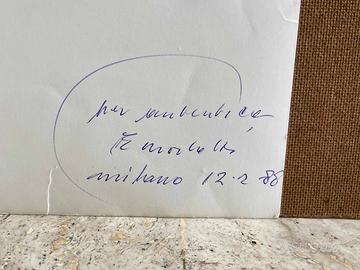 per autentica
milano 12.2.88